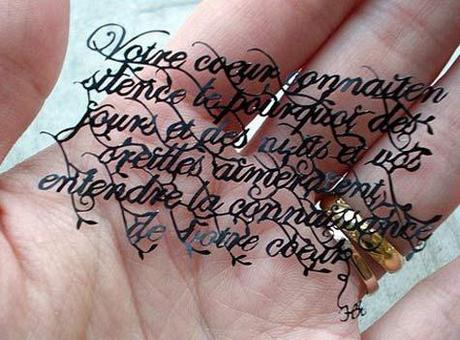 Votre coeur connait en
silence le pourquoi des
jours et des nuits et vos
oreilles aimeraient,
entendre la connaissance
de votre coeur